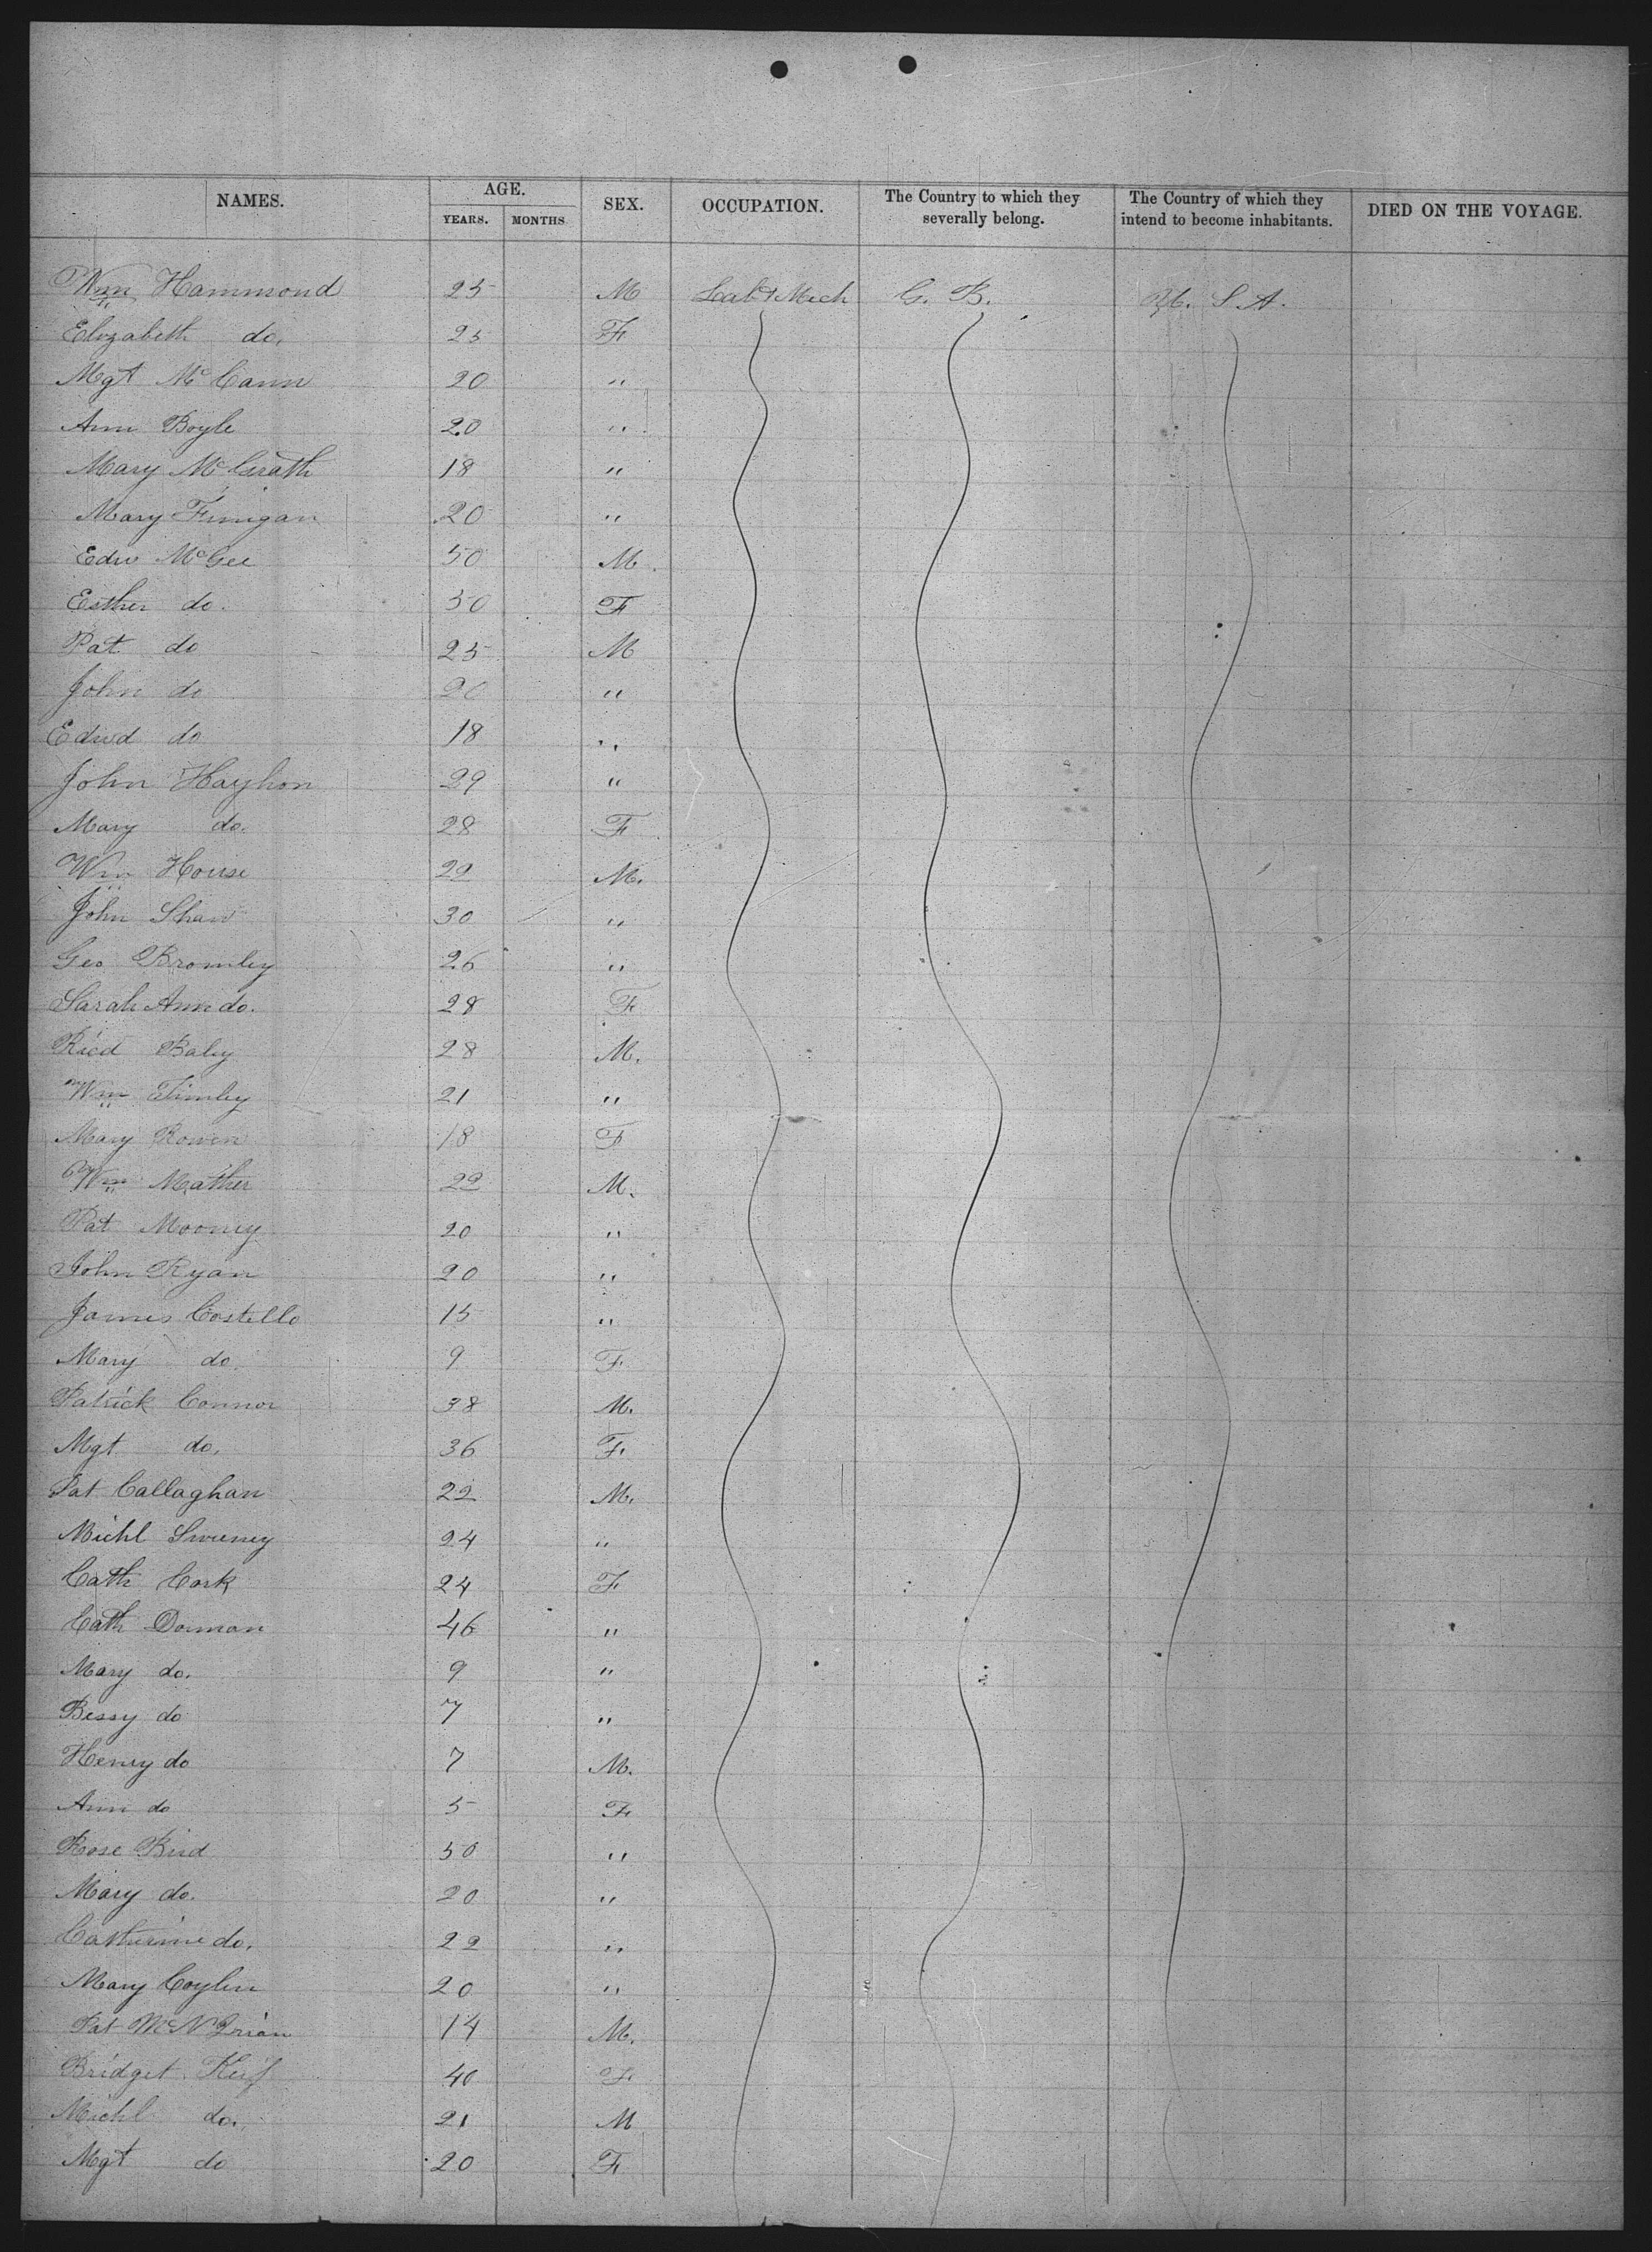 NAMES. AGE. YEARS. MONTHS SEX. OCCUPATION. The Country to which they severally belong. The Country of which they intend to become inhabitants. DIED ON THE VOYAGE.
Wm Hammond 25 M Lab & Mech G. B. U. S A.
Elizabeth do. 25 F
Mgt McCann 20 "
Ann Boyle 20 "
Mary McGrath 18 "
Mary Finigan 20 "
Edw McGee 50 M
Esther do. 50 F
Pat do 25 M
John do 20 "
Edwd do 18 "
John Hayhon 29 "
Mary do. 28 F
Wm House 22 M.
John Shaw 30 "
Geo Bromley 26 "
Sarah Ann do. 28 F
Ricd Baley 28 M.
Wm 21 "
Mary Rowen 18 F
Wm Mather 22 M.
Pat Mooney 20 "
John Ryan 20 "
James Costello 15 "
Mary do. 9 F.
Patrick Connor 38 M.
Mgt do. 36 F.
Pat Callaghan 22 M.
Michl Sweeney 24 "
Cath Cork 24 F
Cath Dorman 46 "
Mary do. 9 "
Bessy do 7 "
Henry do 7 M.
Ann do 5 F
Rose Bird 50 "
Mary do. 20 "
Catherine do. 22 "
Mary Coylin 20 "
Pat 14 M.
Bridget Keif 40 F
Michl do. 21 M
Mgt do 20 F